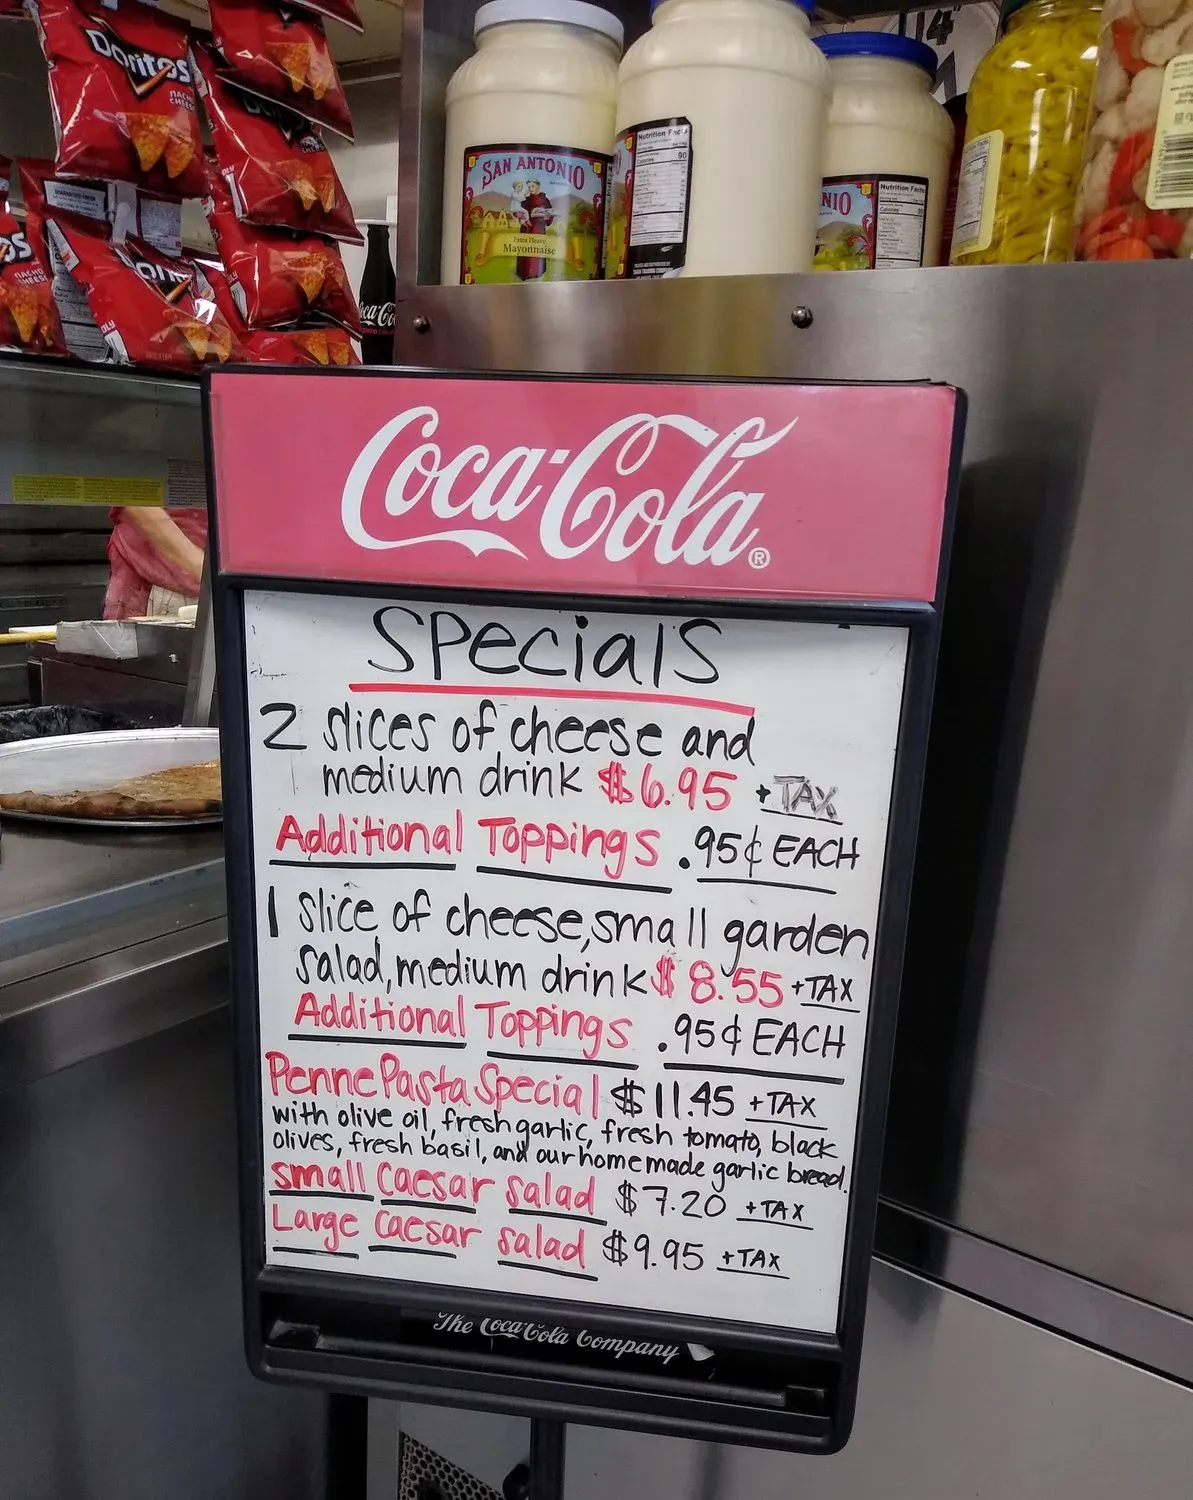 Doritos
NACHO
CHEESE
14"
SAN ANTONIO
Extra Heavy
Mayonnaise
Nutrition Facts
Calories 90
NIO
Nutrition Facts
NACHO
CHEESE
Coca-Cola
Coca-Cola®
Specials
2 slices of cheese and
medium drink $6.95 + TAX
Additional Toppings .95¢ EACH
1 slice of cheese, small garden
salad, medium drink $8.55 + TAX
Additional Toppings .95¢ EACH
Penne Pasta Special $11.45 + TAX
with olive oil, fresh garlic, fresh tomato, black
olives, fresh basil, and our homemade garlic bread.
Small Caesar salad $7.20 + TAX
Large Caesar salad $9.95 + TAX
The Coca-Cola Company